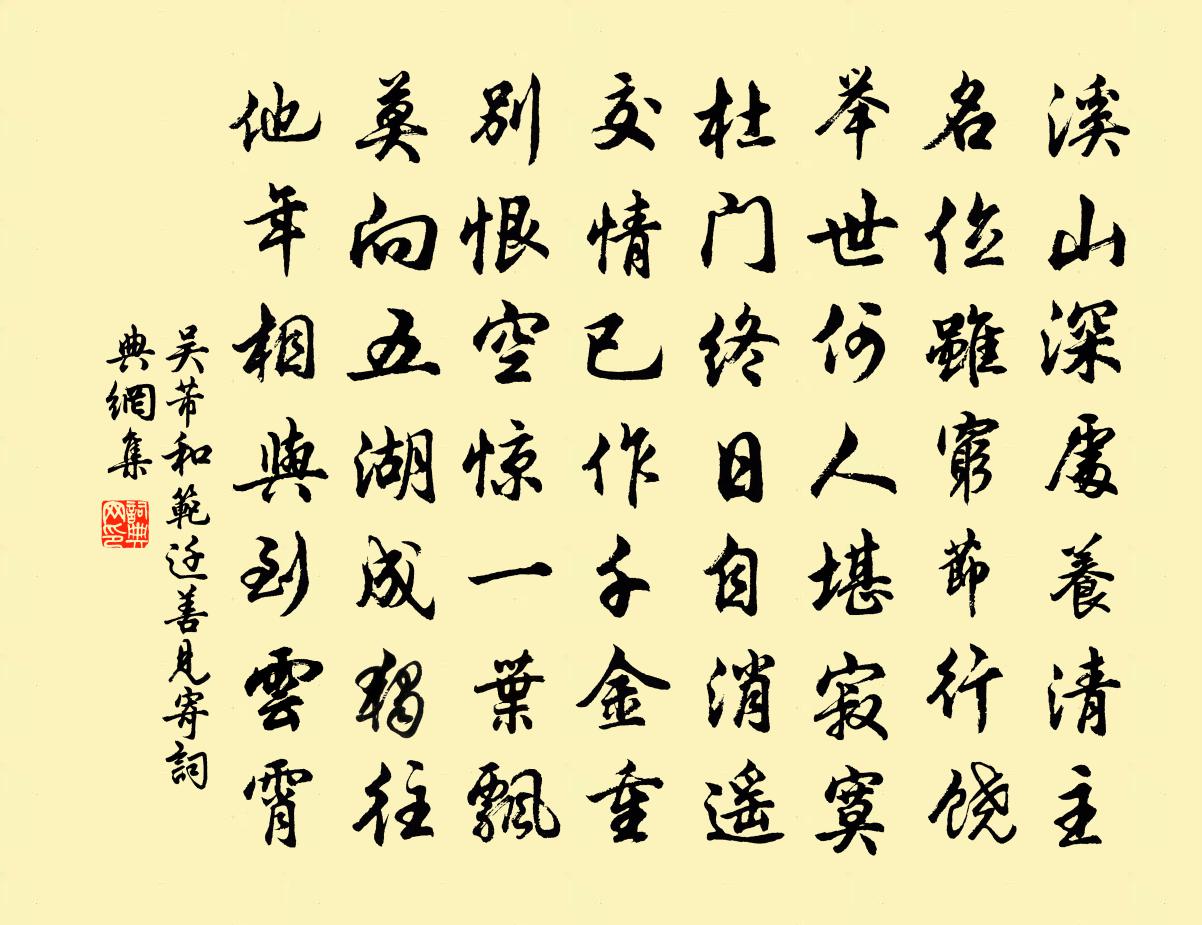 溪山深處養清主
名位雖窮節行饶
举世何人堪寂寞
杜门终日自消遥
交情已作千金重
别恨空惊一葉飄
莫向五湖成獨往
他年相與到雲霄
吴芾和範迂善見寄詞
典網集
詞典
网印